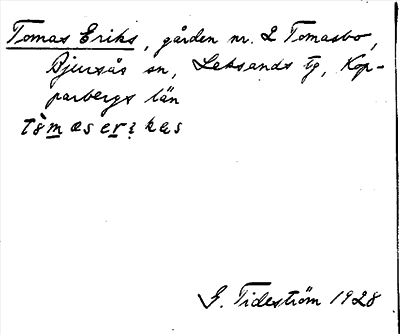 Tomas Eriks, gården nr. 2 Tomasbo,
Bjursås sn, Leksands tg, Kop-
parbergs län
tòmas erikas
G. Tideström 1928